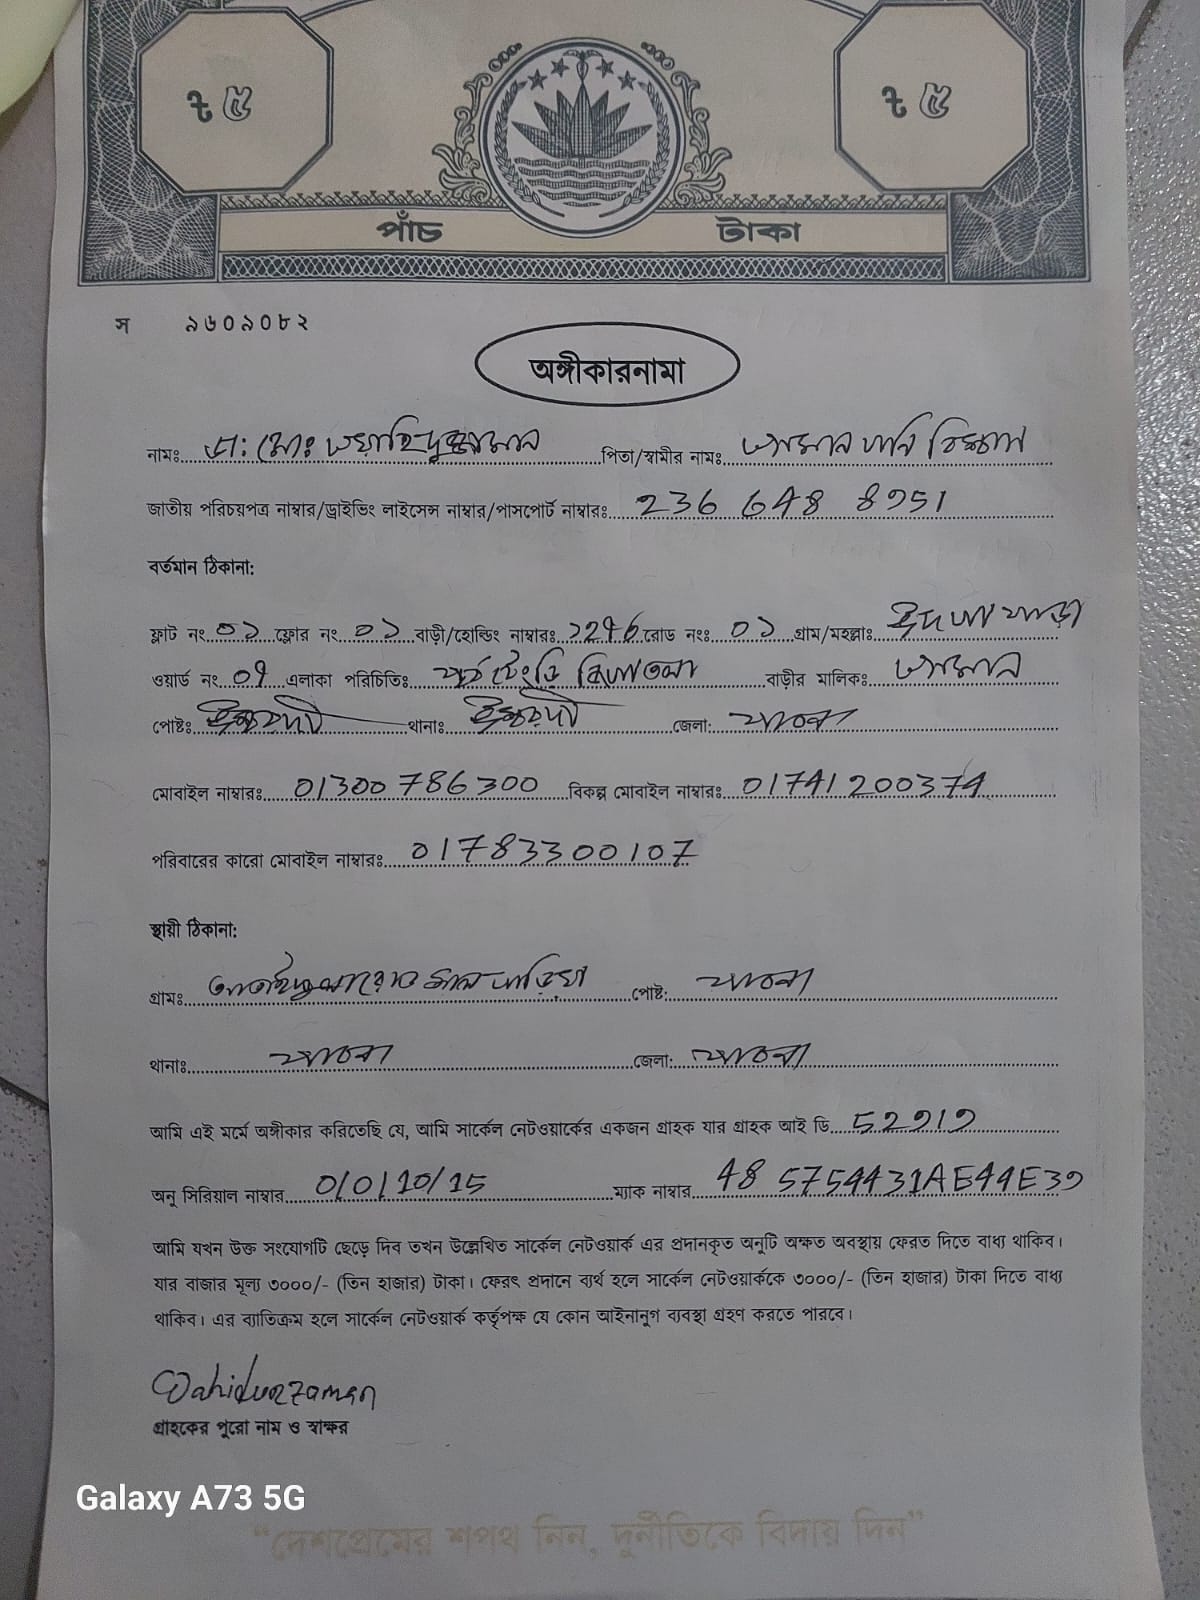 ৳ ৫ ৳ ৫
পাঁচ টাকা
স ৯৬০৯০৮২
অঙ্গীকারনামা
নামঃ ডা: মোঃ ওয়াহিদুজ্জামান পিতা/স্বামীর নামঃ
জাতীয় পরিচয়পত্র নাম্বার/ড্রাইভিং লাইসেন্স নাম্বার/পাসপোর্ট নাম্বারঃ 236 648 8951
বর্তমান ঠিকানা:
ফ্লাট নং ০১ ফ্লোর নং ০১ বাড়ী/হোল্ডিং নাম্বারঃ রোড নংঃ ০১ গ্রাম/মহল্লাঃ
ওয়ার্ড নং ০৭ এলাকা পরিচিতিঃ বাড়ীর মালিকঃ
পোষ্টঃ ঈশ্বরদী থানাঃ ঈশ্বরদী জেলা: পাবনা
মোবাইল নাম্বারঃ 01300 786300 বিকল্প মোবাইল নাম্বারঃ 01741200374
পরিবারের কারো মোবাইল নাম্বারঃ 01783300107
স্থায়ী ঠিকানা:
গ্রামঃ পোষ্ট: পাবনা
থানাঃ পাবনা জেলা: পাবনা
আমি এই মর্মে অঙ্গীকার করিতেছি যে, আমি সার্কেল নেটওয়ার্কের একজন গ্রাহক যার গ্রাহক আই ডি
অনু সিরিয়াল নাম্বার 0/0/10/15 ম্যাক নাম্বার
আমি যখন উক্ত সংযোগটি ছেড়ে দিব তখন উল্লেখিত সার্কেল নেটওয়ার্ক এর প্রদানকৃত অনুটি অক্ষত অবস্থায় ফেরত দিতে বাধ্য থাকিব।
যার বাজার মূল্য ৩০০০/- (তিন হাজার) টাকা। ফেরৎ প্রদানে ব্যর্থ হলে সার্কেল নেটওয়ার্ককে ৩০০০/- (তিন হাজার) টাকা দিতে বাধ্য
থাকিব। এর ব্যাতিক্রম হলে সার্কেল নেটওয়ার্ক কর্তৃপক্ষ যে কোন আইনানুগ ব্যবস্থা গ্রহণ করতে পারবে।
Wahiduzzaman
গ্রাহকের পুরো নাম ও স্বাক্ষর
Galaxy A73 5G
“দেশপ্রেমের শপথ নিন, দুর্নীতিকে বিদায় দিন”